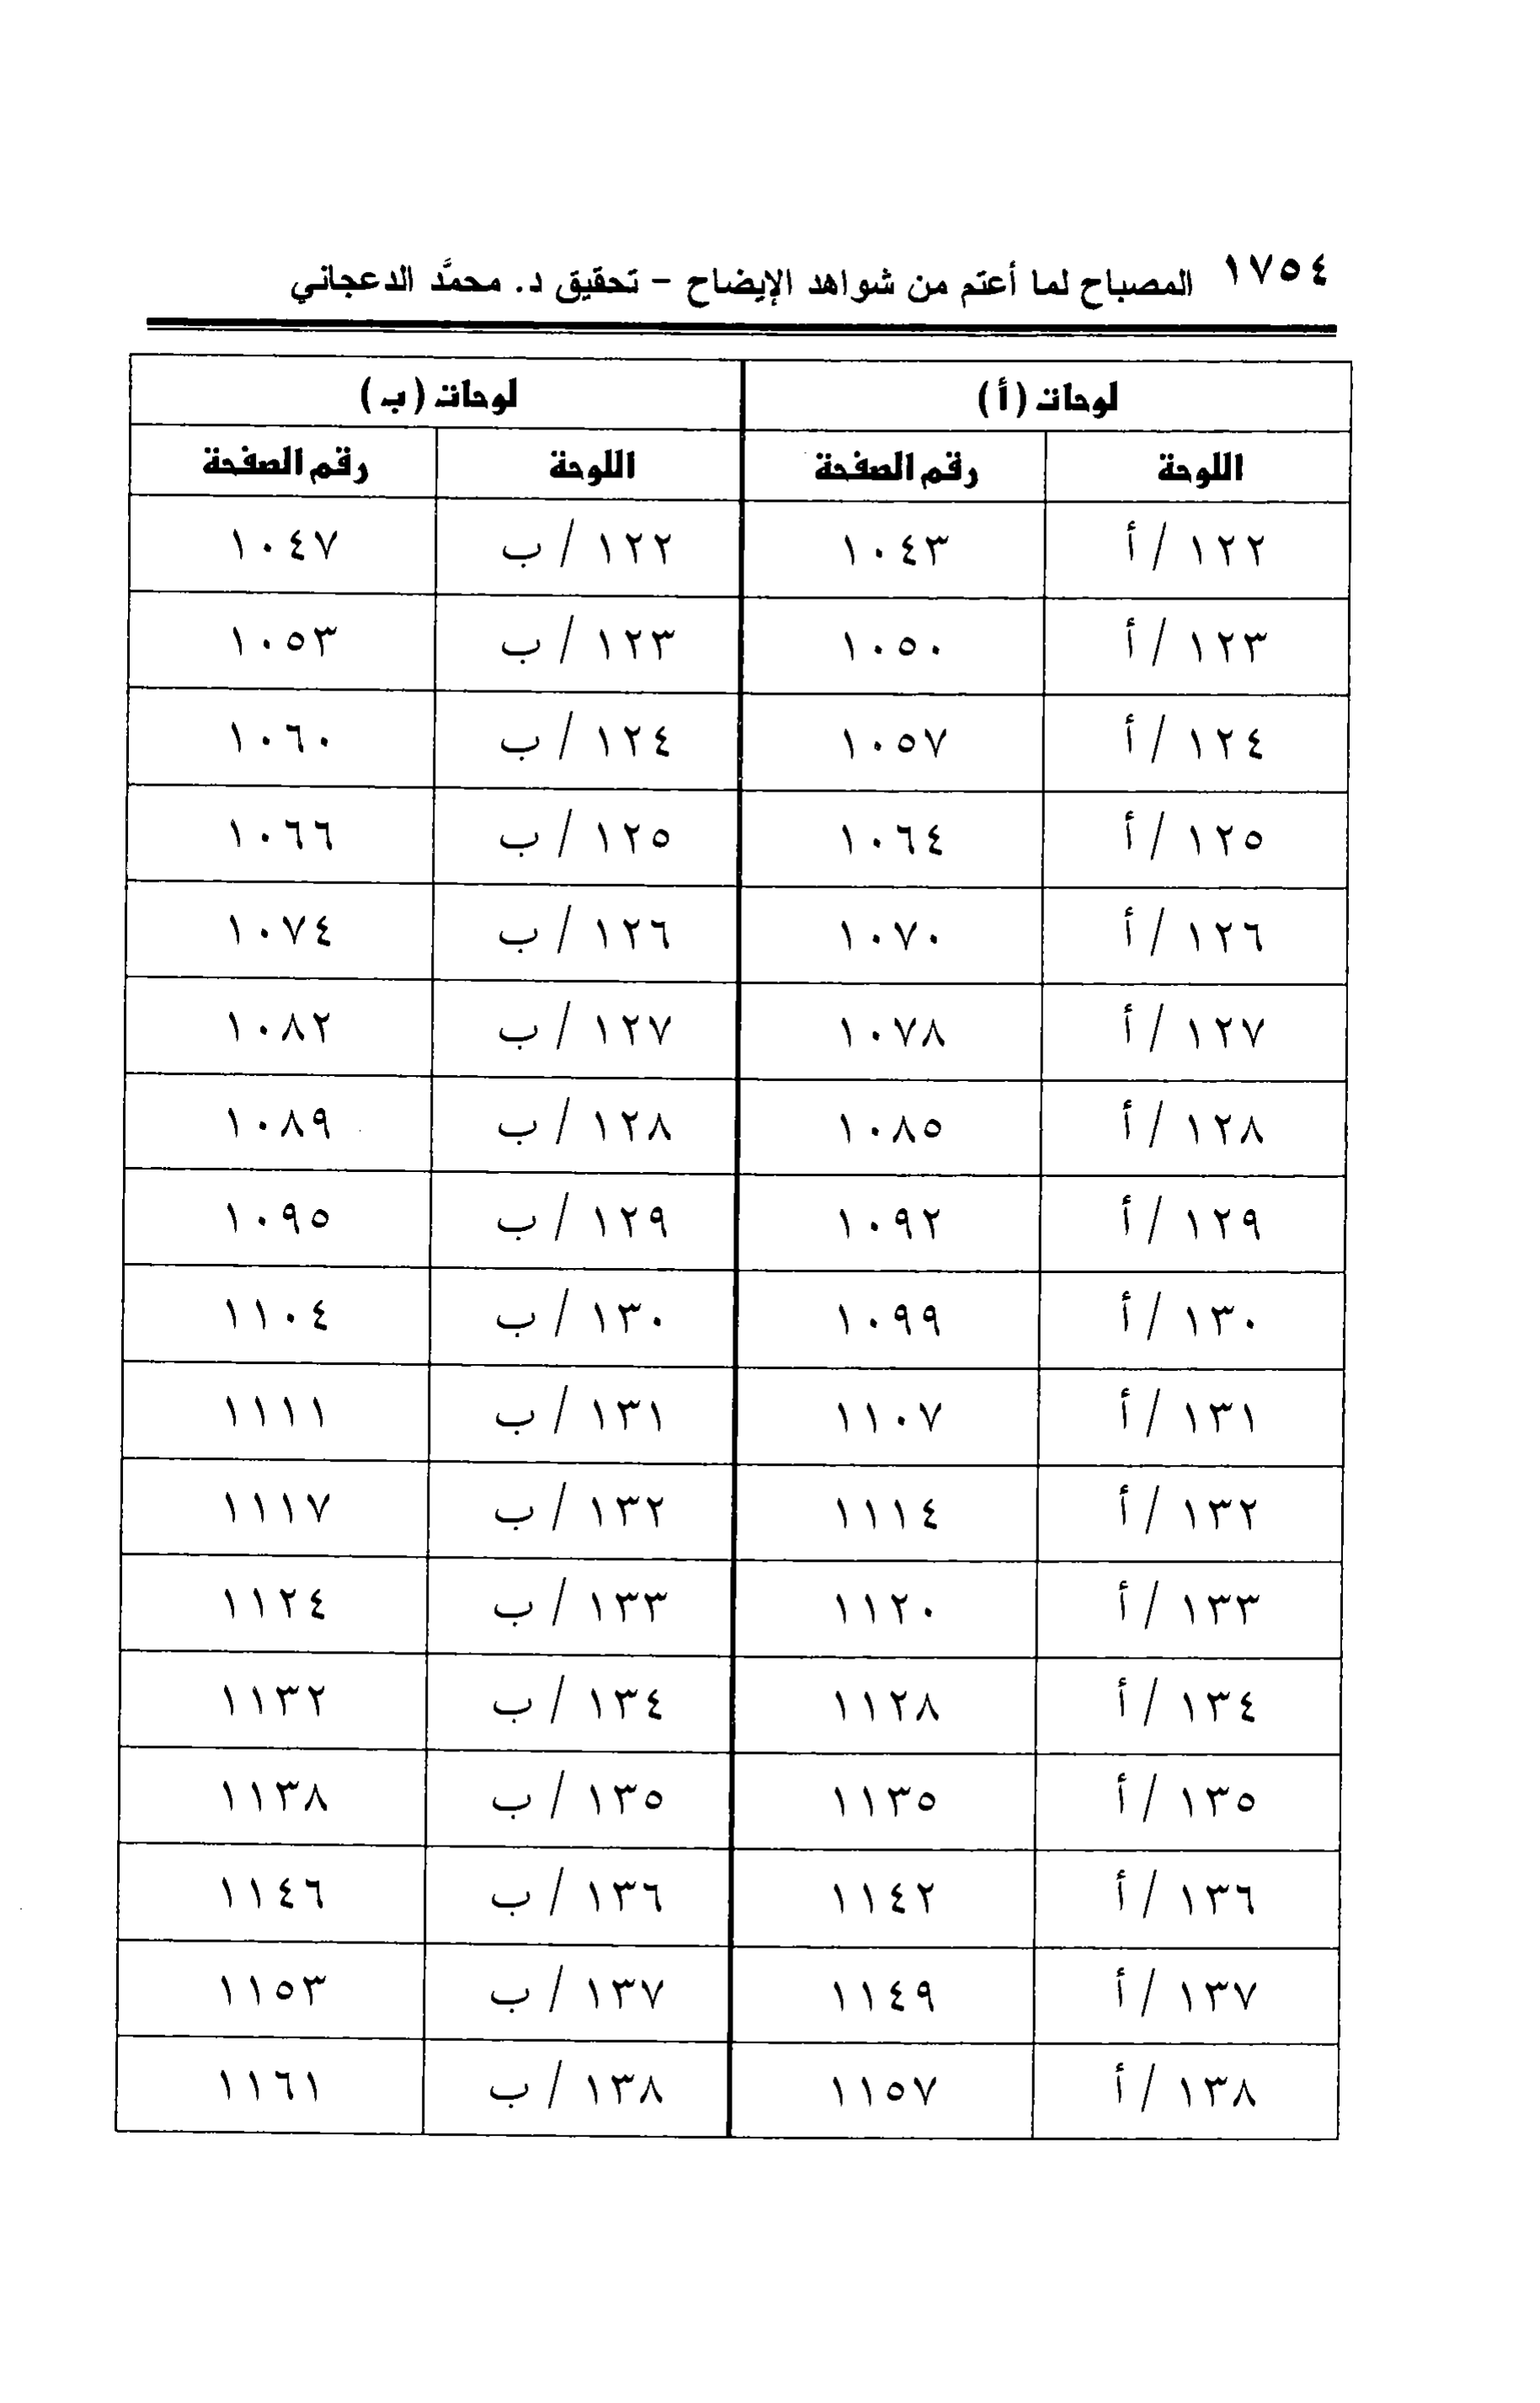 ١٧٥٤ المصباح لما أعتم من شواهد الإيضاح – تحقيق د. محمَّد الدعجاني
لوحات (أ) لوحات (ب)
اللوحة رقم الصفحة اللوحة رقم الصفحة
١٢٢ / أ ١٠٤٣ ١٢٢ / ب ١٠٤٧
١٢٣ / أ ١٠٥٠ ١٢٣ / ب ١٠٥٣
١٢٤ / أ ١٠٥٧ ١٢٤ / ب ١٠٦٠
١٢٥ / أ ١٠٦٤ ١٢٥ / ب ١٠٦٦
١٢٦ / أ ١٠٧٠ ١٢٦ / ب ١٠٧٤
١٢٧ / أ ١٠٧٨ ١٢٧ / ب ١٠٨٢
١٢٨ / أ ١٠٨٥ ١٢٨ / ب ١٠٨٩
١٢٩ / أ ١٠٩٢ ١٢٩ / ب ١٠٩٥
١٣٠ / أ ١٠٩٩ ١٣٠ / ب ١١٠٤
١٣١ / أ ١١٠٧ ١٣١ / ب ١١١١
١٣٢ / أ ١١١٤ ١٣٢ / ب ١١١٧
١٣٣ / أ ١١٢٠ ١٣٣ / ب ١١٢٤
١٣٤ / أ ١١٢٨ ١٣٤ / ب ١١٣٢
١٣٥ / أ ١١٣٥ ١٣٥ / ب ١١٣٨
١٣٦ / أ ١١٤٢ ١٣٦ / ب ١١٤٦
١٣٧ / أ ١١٤٩ ١٣٧ / ب ١١٥٣
١٣٨ / أ ١١٥٧ ١٣٨ / ب ١١٦١